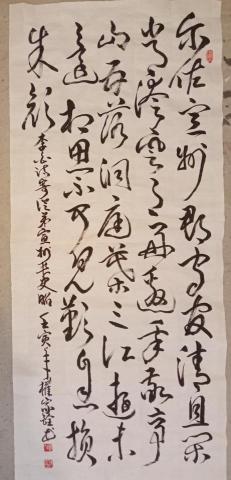 尔佐宣州郡守官清且闲
常夸云月好邀我敬亭
山五落洞庭葉三江遊未
還相思不可見歎息損
朱顔
李白诗寄從弟宣州長史昭 壬寅